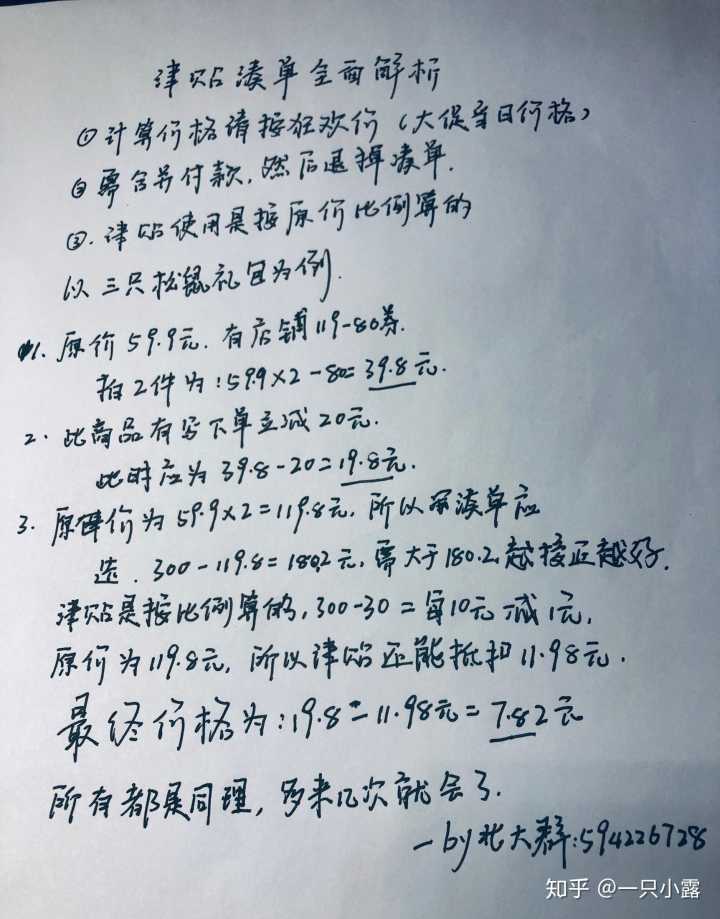 津贴凑单全面解析
①计算价格请按狂欢价(大促当日价格)
②需合并付款,然后退掉凑单.
③.津贴使用是按原价比例算的
以三只松鼠礼包为例.
1.原价59.9元.有店铺119-80券.
拍2件为:59.9×2-80=39.8元.
2.此商品有写下单立减20元.
此时应为39.8-20=19.8元.
3.原单价为59.9×2=119.8元,所以凑单应
选.300-119.8=180.2元,需大于180.2,越接近越好.
津贴是按比例算的,300-30=每10元减1元,
原价为119.8元,所以津贴还能抵扣11.98元.
最终价格为:19.8-11.98元=7.82元
所有都是同理,多来几次就会了.
—by北大群:594226728
知乎 @一只小露